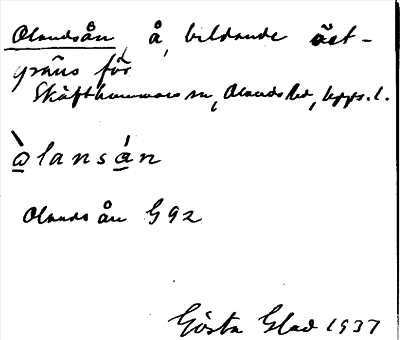 Olandsån, å, bildande öst-
gräns för
Skäfthammars sn, Olands hd, Upps. l.
òlansán
Olands ån G92
Gösta Glad 1937